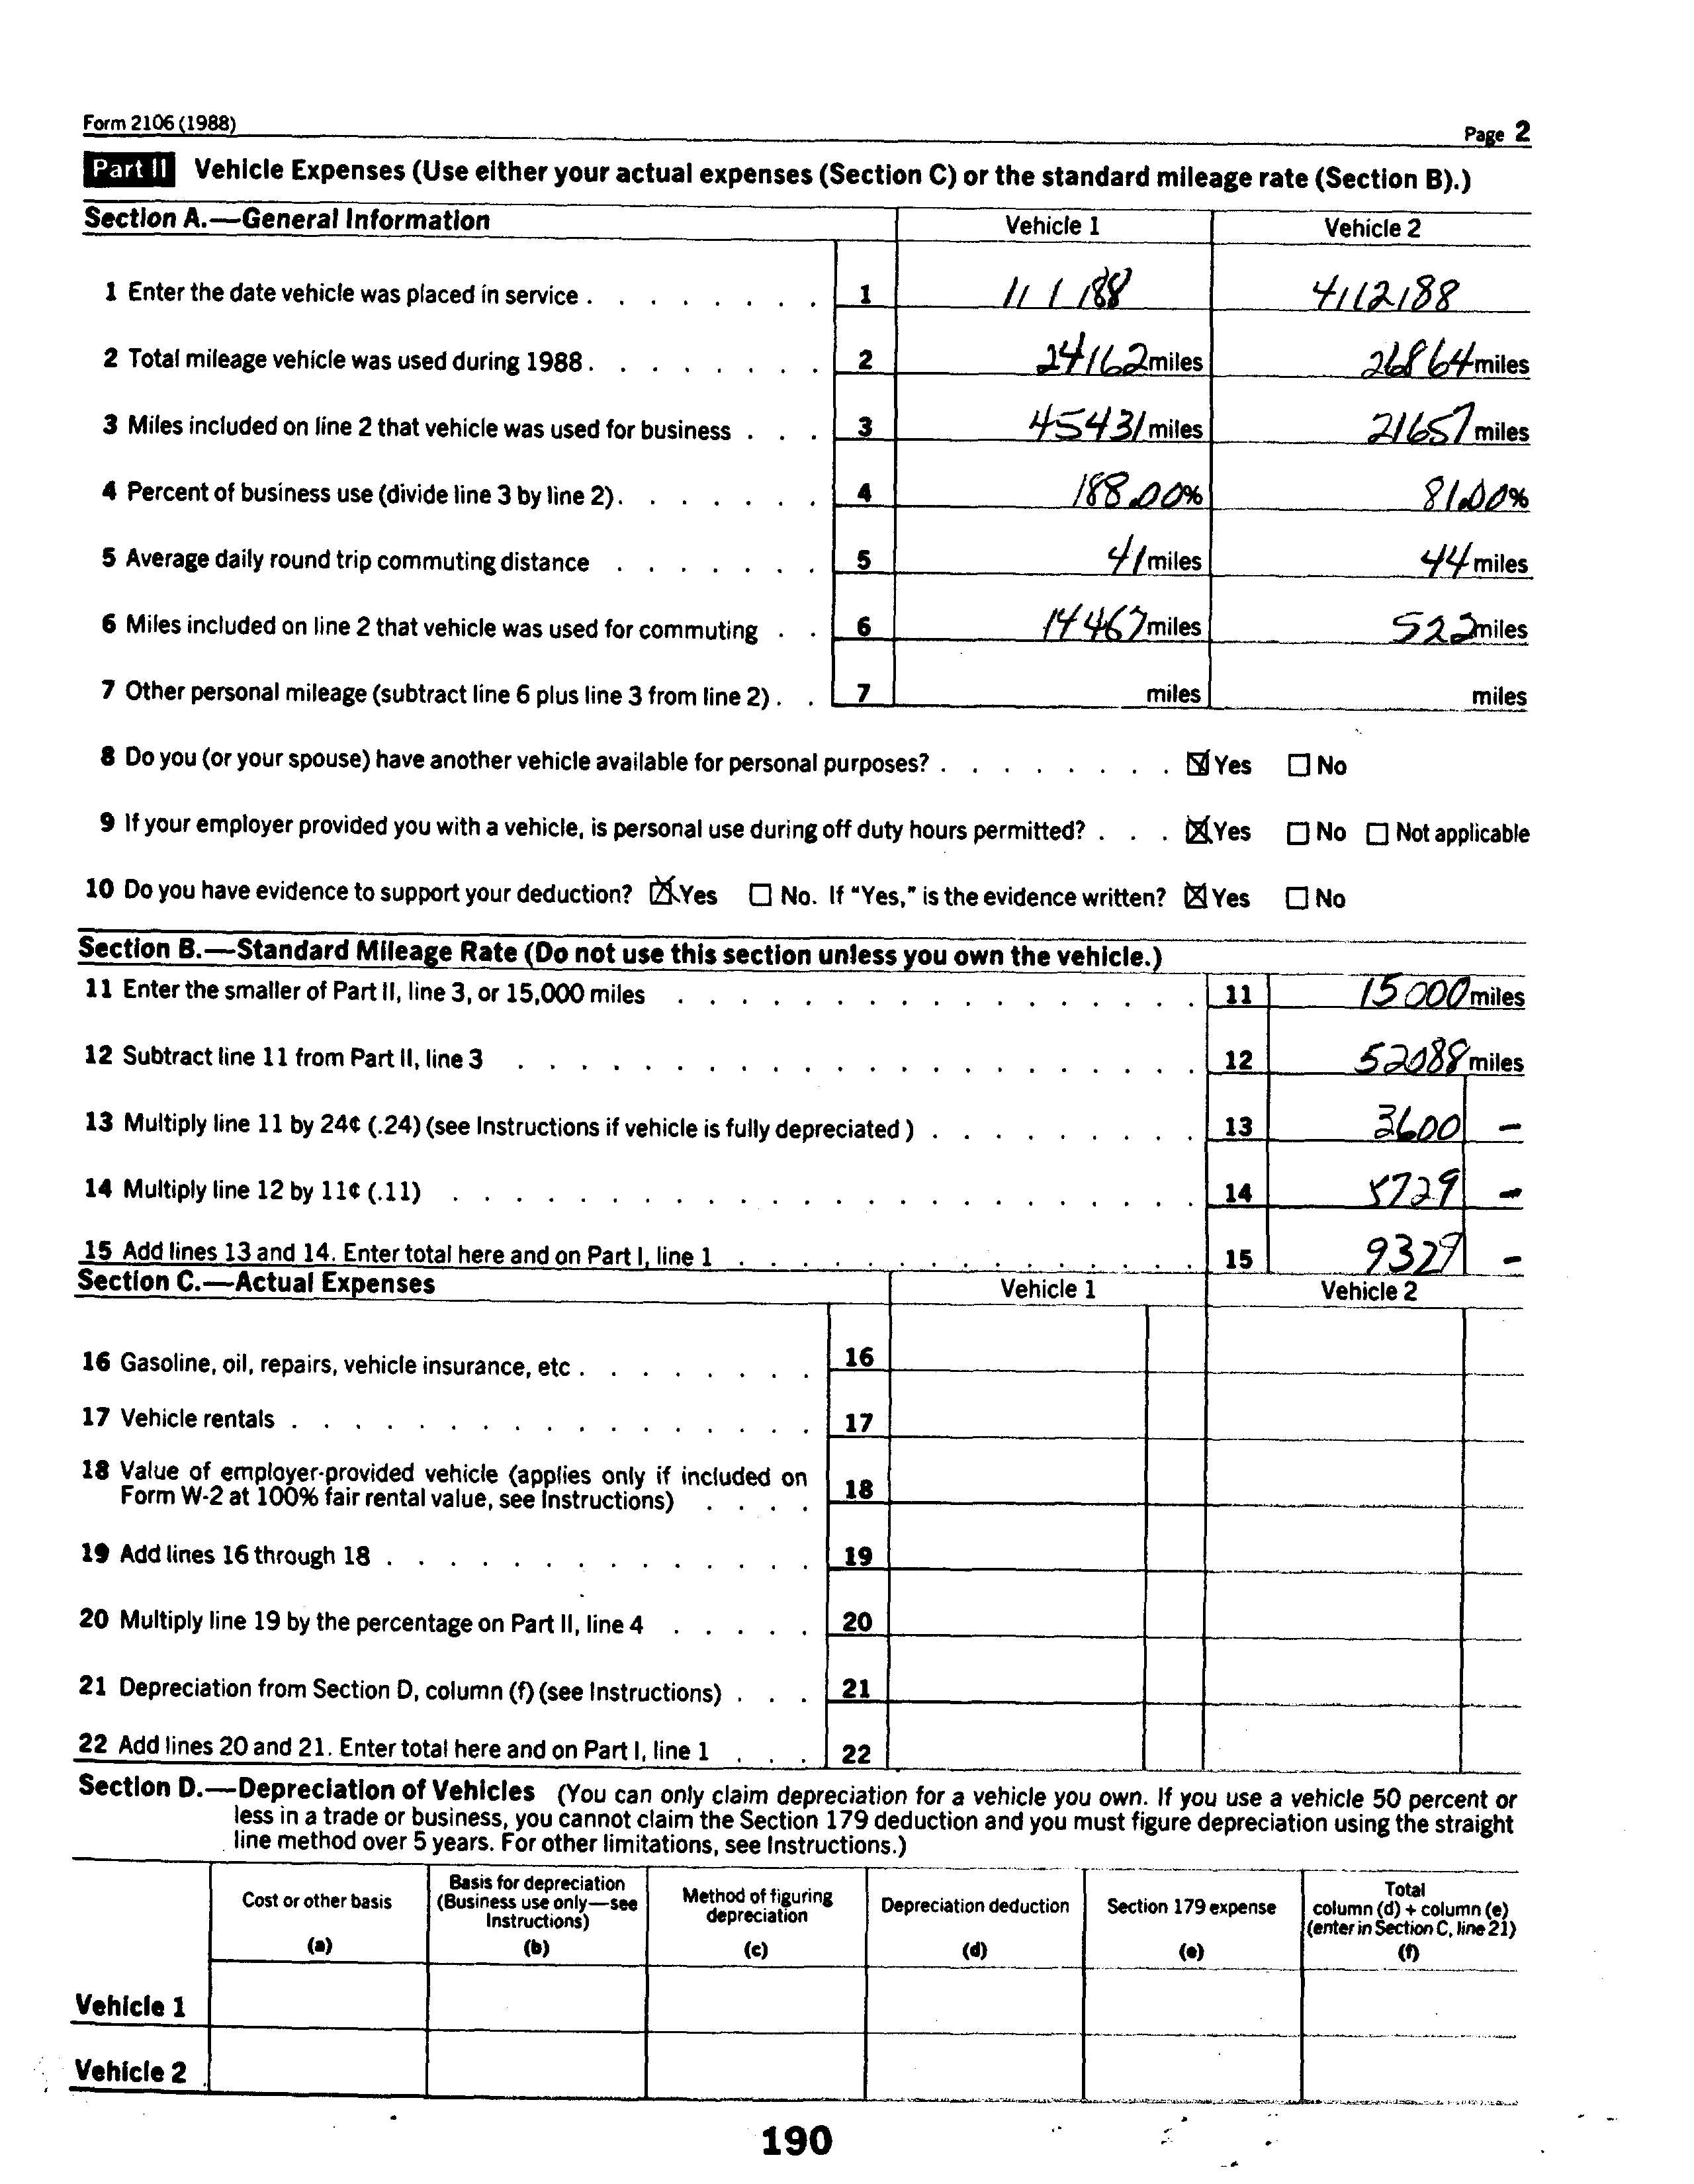 Form 2106 (1988) Page 2
Part II Vehicle Expenses (Use either your actual expenses (Section C) or the standard mileage rate (Section B).)
Section A.—General Information Vehicle 1 Vehicle 2
1 Enter the date vehicle was placed in service . . . . . . . . 1 11 / 1 / 88 4/12/88
2 Total mileage vehicle was used during 1988 . . . . . . . . 2 24162 miles 26864 miles
3 Miles included on line 2 that vehicle was used for business . . . 3 45431 miles 21657 miles
4 Percent of business use (divide line 3 by line 2) . . . . . . . 4 188.00% 81.00%
5 Average daily round trip commuting distance . . . . . . . 5 41 miles 44 miles
6 Miles included on line 2 that vehicle was used for commuting . . 6 14467 miles 522 miles
7 Other personal mileage (subtract line 6 plus line 3 from line 2) . . 7 miles miles
8 Do you (or your spouse) have another vehicle available for personal purposes? . . . . . . . . ☒ Yes ☐ No
9 If your employer provided you with a vehicle, is personal use during off duty hours permitted? . . . ☒ Yes ☐ No ☐ Not applicable
10 Do you have evidence to support your deduction? ☒ Yes ☐ No. If “Yes,” is the evidence written? ☒ Yes ☐ No
Section B.—Standard Mileage Rate (Do not use this section unless you own the vehicle.)
11 Enter the smaller of Part II, line 3, or 15,000 miles . . . . . . . . . . . . . . . . . 11 15000 miles
12 Subtract line 11 from Part II, line 3 . . . . . . . . . . . . . . . . . . . . . . 12 52088 miles
13 Multiply line 11 by 24¢ (.24) (see Instructions if vehicle is fully depreciated ) . . . . . . . . . 13 3600 –
14 Multiply line 12 by 11¢ (.11) . . . . . . . . . . . . . . . . . . . . . . . . 14 5729 –
15 Add lines 13 and 14. Enter total here and on Part I, line 1 . . . . . . . . . . . . . . . 15 9329 –
Section C.—Actual Expenses Vehicle 1 Vehicle 2
16 Gasoline, oil, repairs, vehicle insurance, etc . . . . . . . . 16
17 Vehicle rentals . . . . . . . . . . . . . . . . . 17
18 Value of employer-provided vehicle (applies only if included on
Form W-2 at 100% fair rental value, see Instructions) . . . . 18
19 Add lines 16 through 18 . . . . . . . . . . . . . . 19
20 Multiply line 19 by the percentage on Part II, line 4 . . . . . 20
21 Depreciation from Section D, column (f) (see Instructions) . . . 21
22 Add lines 20 and 21. Enter total here and on Part I, line 1 . . . 22
Section D.—Depreciation of Vehicles (You can only claim depreciation for a vehicle you own. If you use a vehicle 50 percent or
less in a trade or business, you cannot claim the Section 179 deduction and you must figure depreciation using the straight
line method over 5 years. For other limitations, see Instructions.)
Cost or other basis
(a)
Basis for depreciation
(Business use only—see
Instructions)
(b)
Method of figuring
depreciation
(c)
Depreciation deduction
(d)
Section 179 expense
(e)
Total
column (d) + column (e)
(enter in Section C, line 21)
(f)
Vehicle 1
Vehicle 2
190